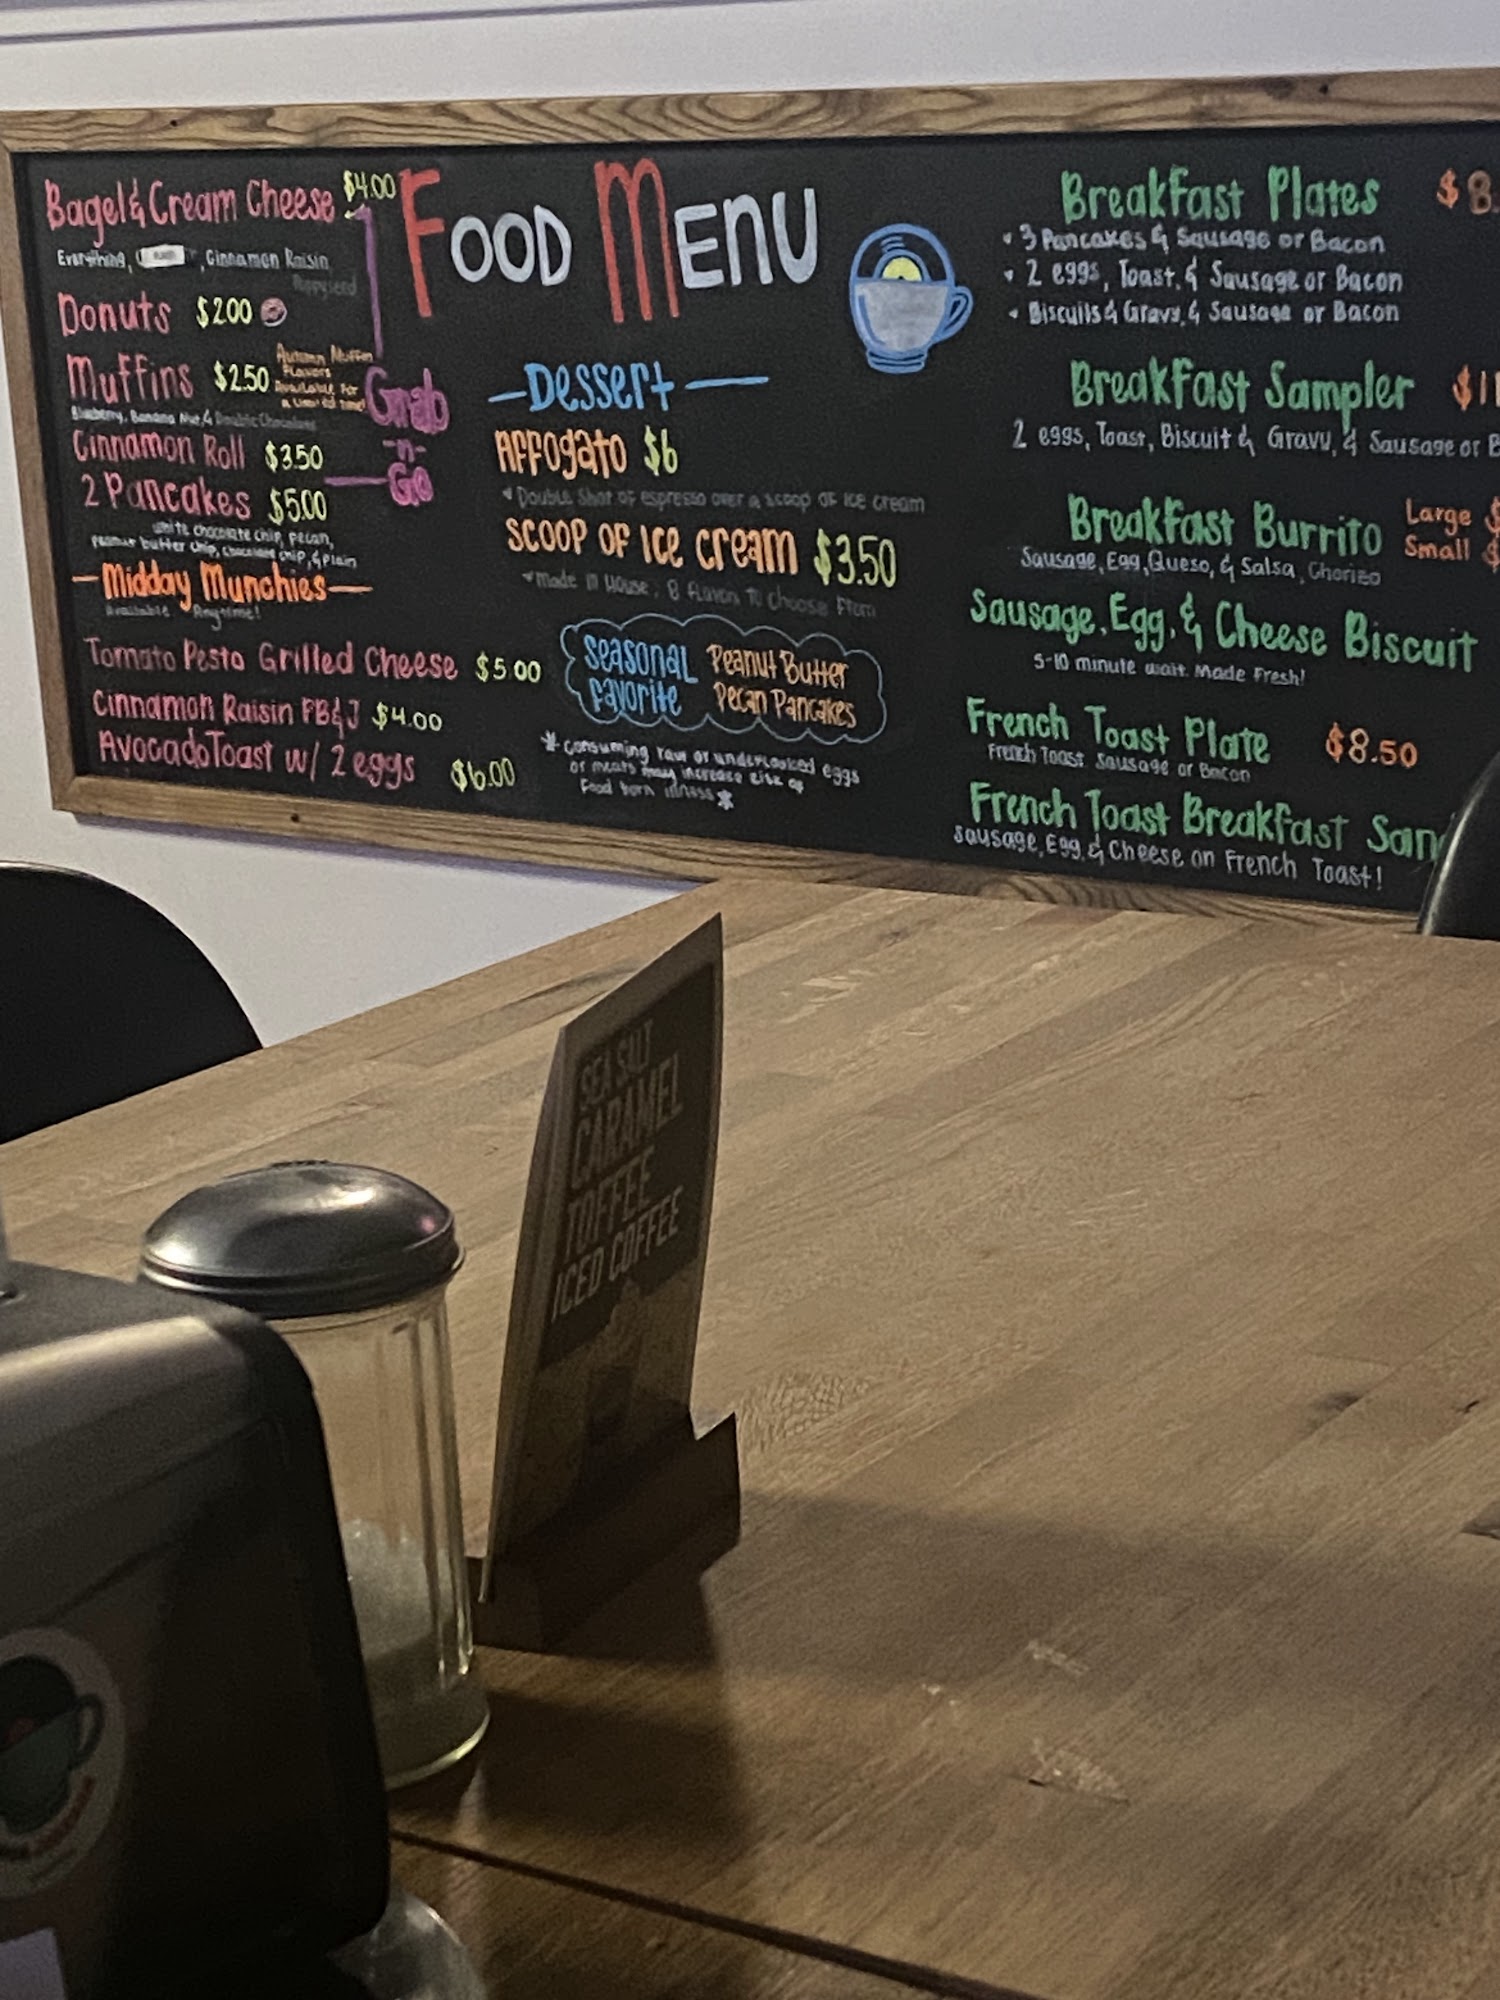 Bagel & Cream Cheese $4.00
Everything, , Cinnamon Raisin
Poppyseed
Donuts $2.00
Muffins $2.50
Autumn Muffin
Flavors
Available For
a limited time!
Blueberry, Banana Nut, & Double Chocolate
Cinnamon Roll $3.50
2 Pancakes $5.00
white chocolate chip, pecan,
peanut butter chip, chocolate chip, & plain
Grab
-n-
Go
—Midday Munchies—
available Anytime!
Tomato Pesto Grilled Cheese $5.00
Cinnamon Raisin PB&J $4.00
Avocado Toast w/ 2 eggs $6.00
Food Menu
—Dessert—
Affogato $6
Double Shot of espresso over a scoop of ice cream
Scoop of Ice Cream $3.50
made in House, 8 flavors to choose from
Seasonal
Favorite
Peanut Butter
Pecan Pancakes
* consuming raw or undercooked eggs
or meats may increase risk of
food born illness *
Breakfast Plates $8.
• 3 Pancakes & Sausage or Bacon
• 2 eggs, Toast, & Sausage or Bacon
• Biscuits & Gravy, & Sausage or Bacon
Breakfast Sampler $11
2 eggs, Toast, Biscuit & Gravy, & Sausage or B
Breakfast Burrito
Large $
Small $
Sausage, Egg, Queso, & Salsa, Chorizo
Sausage, Egg, & Cheese Biscuit
5-10 minute wait. Made Fresh!
French Toast Plate $8.50
French Toast, Sausage or Bacon
French Toast Breakfast San
Sausage, Egg, & Cheese on French Toast!
SEA SALT
CARAMEL
TOFFEE
ICED COFFEE